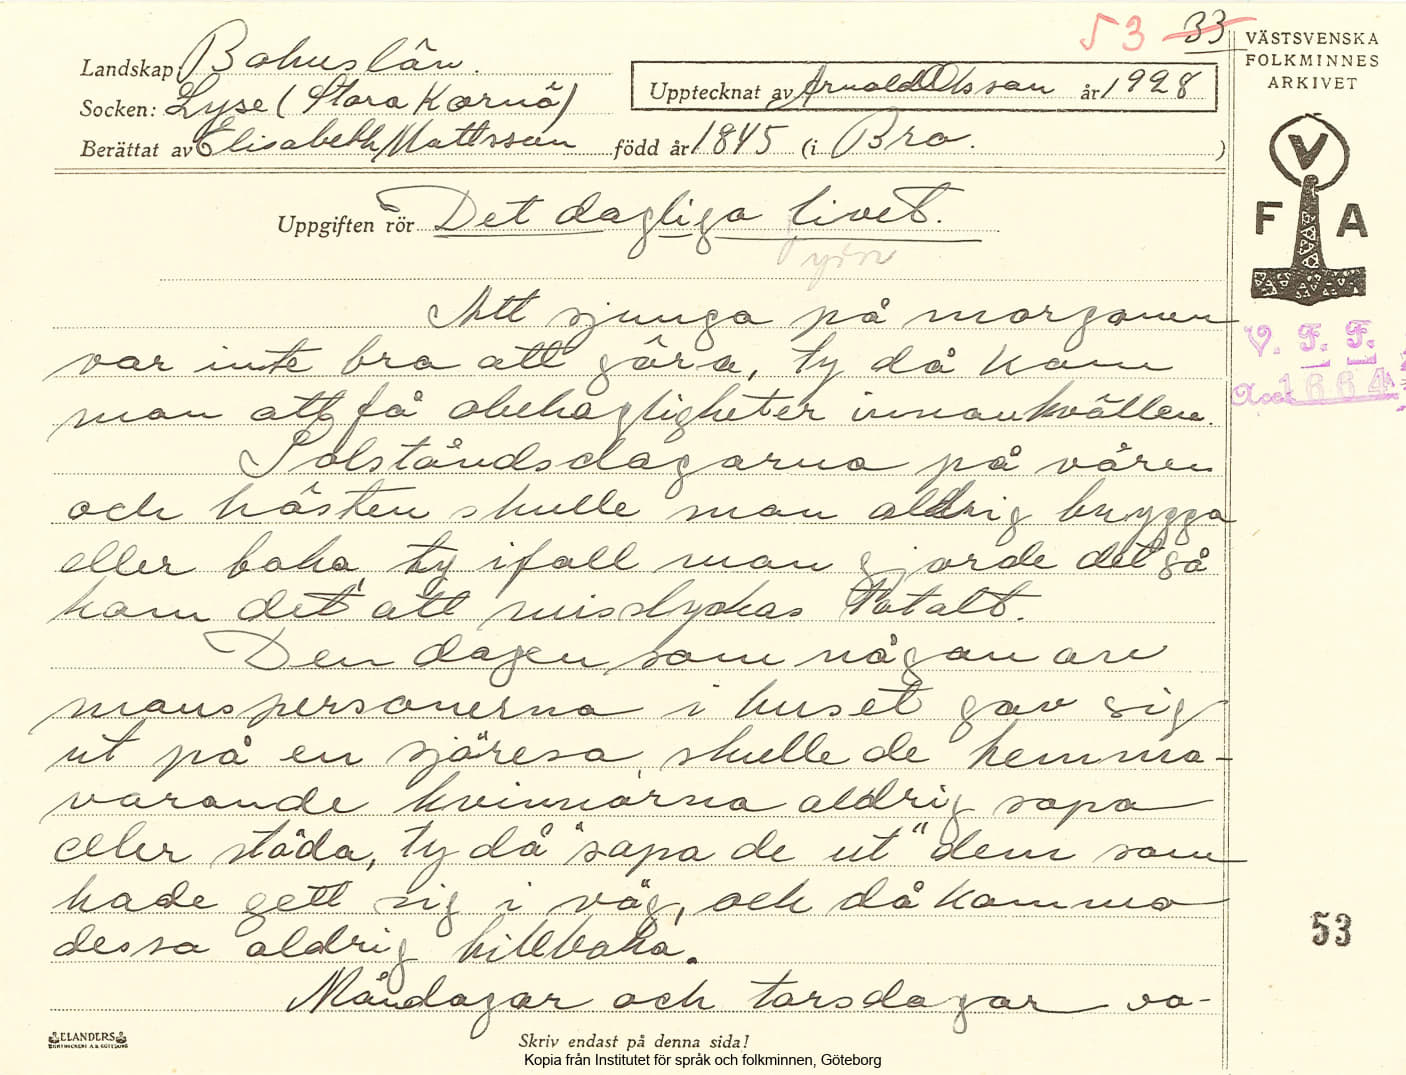 53 33
VÄSTSVENSKA
FOLKMINNES
ARKIVET
Landskap Bohuslän.
Upptecknat av Arnold Olsson år 1928
Socken: Lyse (Stora Kornö)
Berättat av Elisabeth Mattsson född år 1845 (i Bro. )
V
F A
Uppgiften rör Det dagliga livet.
Att sjunga på morgonen
var inte bra att göra, ty då kom
man att få obehagligheter innan kvällen.
Solståndsdagarna på våren
och hösten skulle man aldrig brygga
eller baka, ty ifall man gjorde det så
kom det att misslyckas totalt.
Den dagen som någon av
manspersonerna i huset gav sig
ut på en sjöresa, skulle de hemma-
varande kvinnorna aldrig sopa
eller städa, ty då "sopa de ut" dem som
hade gett sig i väg, och då kommo
dessa aldrig tillbaka.
Måndagar och torsdagar vo-
V. F. F.
Acc. 1664
53
ELANDERS
Skriv endast på denna sida!
Kopia från Institutet för språk och folkminnen, Göteborg